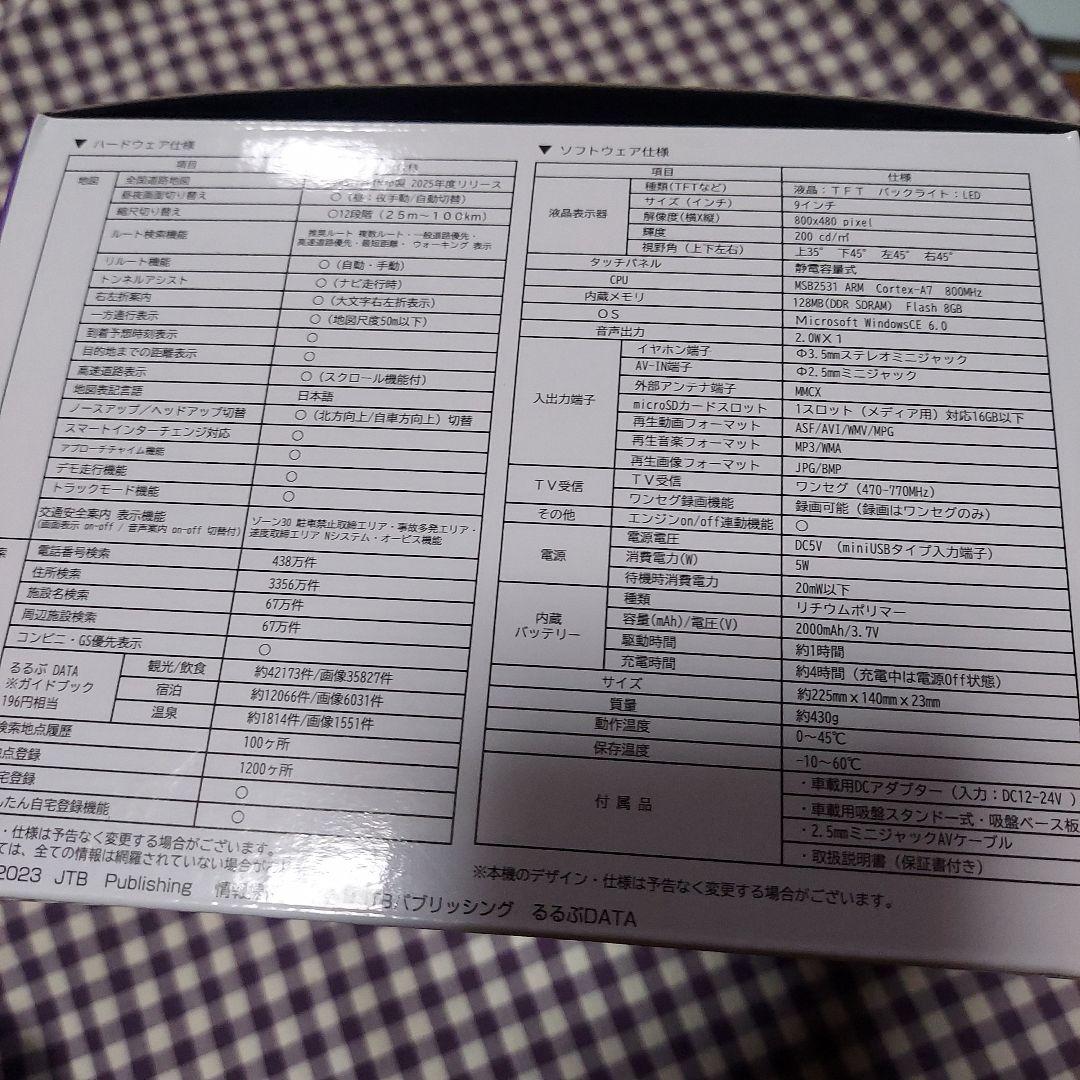 ▼ ハードウェア仕様
項目
地図
全国道路地図
2025年度リリース
昼夜画面切り替え
○（昼：夜手動/自動切替）
縮尺切り替え
○12段階（25m～100km）
ルート検索機能
推奨ルート 複数ルート・一般道路優先・
高速道路優先・最短距離・ ウォーキング 表示
リルート機能
○（自動・手動）
トンネルアシスト
○（ナビ走行時）
右左折案内
○（大文字右左折表示）
一方通行表示
○（地図尺度50m以下）
到着予想時刻表示
○
目的地までの距離表示
○
高速道路表示
○（スクロール機能付）
地図表記言語
日本語
ノースアップ／ヘッドアップ切替
○（北方向上/自車方向上）切替
スマートインターチェンジ対応
○
アプローチチャイム機能
○
デモ走行機能
○
トラックモード機能
○
交通安全案内 表示機能
(画面表示 on-off / 音声案内 on-off 切替付)
ゾーン30 駐車禁止取締エリア・事故多発エリア・
速度取締エリア Nシステム・オービス機能
索
電話番号検索
438万件
住所検索
3356万件
施設名検索
67万件
周辺施設検索
67万件
コンビニ・GS優先表示
○
るるぶ DATA
※ガイドブック
196円相当
観光/飲食
約42173件/画像35827件
宿泊
約12066件/画像6031件
温泉
約1814件/画像1551件
検索地点履歴
100ヶ所
点登録
1200ヶ所
宅登録
○
んたん自宅登録機能
○
・仕様は予告なく変更する場合がございます。
ては、全ての情報は網羅されていない場合が
2023 JTB Publishing
JTBパブリッシング るるぶDATA
▼ ソフトウェア仕様
項目
仕様
液晶表示器
種類(TFTなど)
液晶：TFT バックライト：LED
サイズ（インチ）
9インチ
解像度(横X縦)
800x480 pixel
輝度
200 cd/㎡
視野角（上下左右）
上35° 下45° 左45° 右45°
タッチパネル
静電容量式
CPU
MSB2531 ARM Cortex-A7 800MHz
内蔵メモリ
128MB(DDR SDRAM) Flash 8GB
OS
Microsoft WindowsCE 6.0
音声出力
2.0W×1
入出力端子
イヤホン端子
Φ3.5mmステレオミニジャック
AV-IN端子
Φ2.5mmミニジャック
外部アンテナ端子
MMCX
microSDカードスロット
1スロット（メディア用）対応16GB以下
再生動画フォーマット
ASF/AVI/WMV/MPG
再生音楽フォーマット
MP3/WMA
再生画像フォーマット
JPG/BMP
TV受信
TV受信
ワンセグ（470-770MHz）
ワンセグ録画機能
録画可能（録画はワンセグのみ）
その他
エンジンon/off連動機能
○
電源
電源電圧
DC5V （miniUSBタイプ入力端子）
消費電力(W)
5W
待機時消費電力
20mW以下
内蔵
バッテリー
種類
リチウムポリマー
容量(mAh)/電圧(V)
2000mAh/3.7V
駆動時間
約1時間
充電時間
約4時間（充電中は電源Off状態）
サイズ
約225mm x 140mm x 23mm
質量
約430g
動作温度
0～45℃
保存温度
-10～60℃
付属品
・車載用DCアダプター（入力：DC12-24V ）
・車載用吸盤スタンド一式・吸盤ベース板
・2.5mmミニジャックAVケーブル
・取扱説明書（保証書付き）
※本機のデザイン・仕様は予告なく変更する場合がございます。